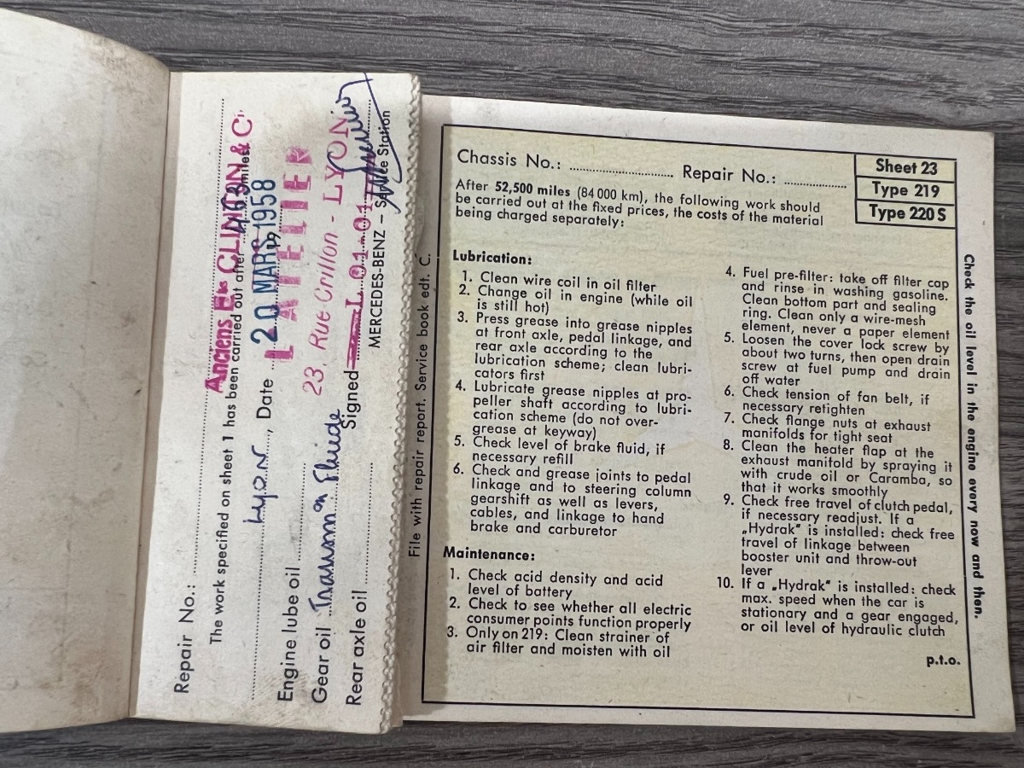 Repair No.:
The work specified on sheet 1 has been carried out after 463 miles
Anciens Et CLINSON & C
Lyon, Date 20 MARS 1958
L'ATELIER
Engine lube oil
23, Rue Crillon - LYON
Gear oil Transmon Fluide
Signed
Rear axle oil
MERCEDES-BENZ – Service Station
File with repair report. Service book edt. C.
Chassis No.: Repair No.:
Sheet 23
Type 219
Type 220 S
After 52,500 miles (84 000 km), the following work should
be carried out at the fixed prices, the costs of the material
being charged separately:
Lubrication:
1. Clean wire coil in oil filter
2. Change oil in engine (while oil
is still hot)
3. Press grease into grease nipples
at front axle, pedal linkage, and
rear axle according to the
lubrication scheme; clean lubri-
cators first
4. Lubricate grease nipples at pro-
peller shaft according to lubri-
cation scheme (do not over-
grease at keyway)
5. Check level of brake fluid, if
necessary refill
6. Check and grease joints to pedal
linkage and to steering column
gearshift as well as levers,
cables, and linkage to hand
brake and carburetor
Maintenance:
1. Check acid density and acid
level of battery
2. Check to see whether all electric
consumer points function properly
3. Only on 219: Clean strainer of
air filter and moisten with oil
4. Fuel pre-filter: take off filter cap
and rinse in washing gasoline.
Clean bottom part and sealing
ring. Clean only a wire-mesh
element, never a paper element
5. Loosen the cover lock screw by
about two turns, then open drain
screw at fuel pump and drain
off water
6. Check tension of fan belt, if
necessary retighten
7. Check flange nuts at exhaust
manifolds for tight seat
8. Clean the heater flap at the
exhaust manifold by spraying it
with crude oil or Caramba, so
that it works smoothly
9. Check free travel of clutch pedal,
if necessary readjust. If a
„Hydrak“ is installed: check free
travel of linkage between
booster unit and throw-out
lever
10. If a „Hydrak“ is installed: check
max. speed when the car is
stationary and a gear engaged,
or oil level of hydraulic clutch
p.t.o.
Check the oil level in the engine every now and then.